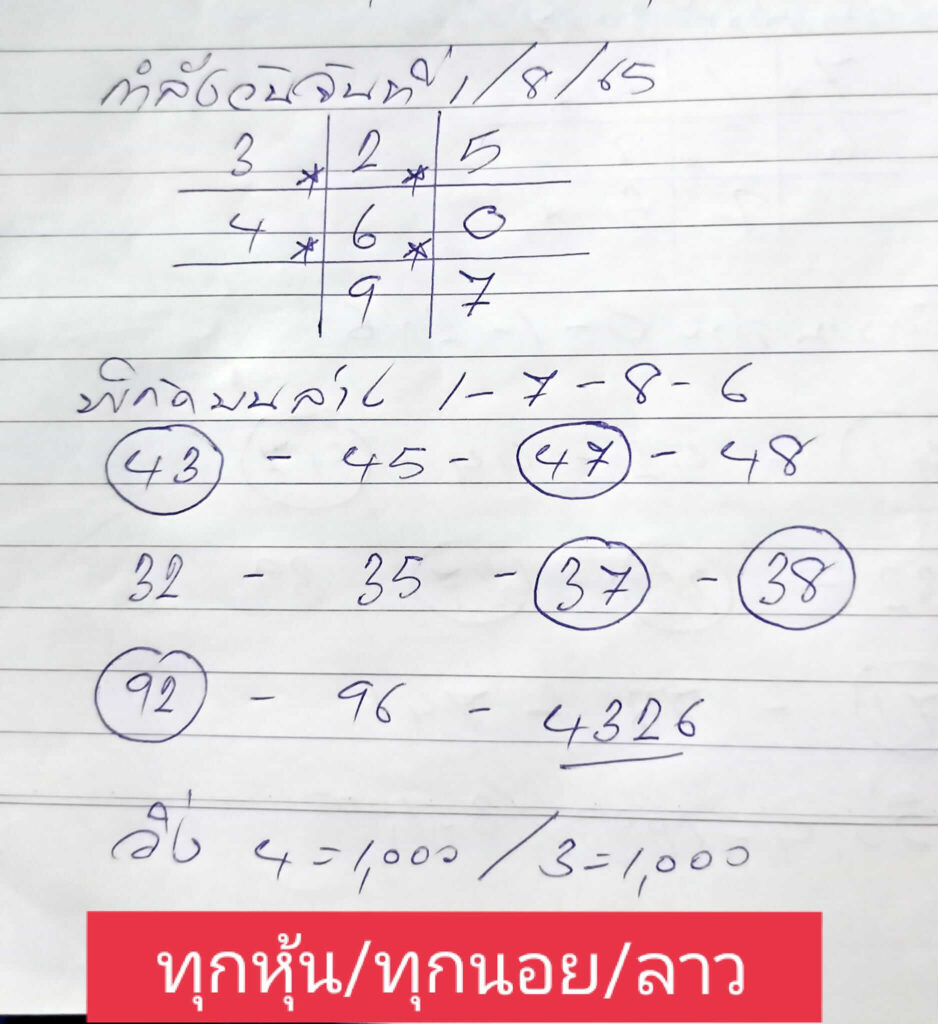 กำลังวันจันทร์ 1/8/65
3 * 2 * 5
4 * 6 * 0
9 7
พิกัดบนล่าง 1-7-8-6
43 - 45 - 47 - 48
32 - 35 - 37 - 38
92 - 96 - 4326
วิ่ง 4=1,000/3=1,000
ทุกหุ้น/ทุกนอย/ลาว